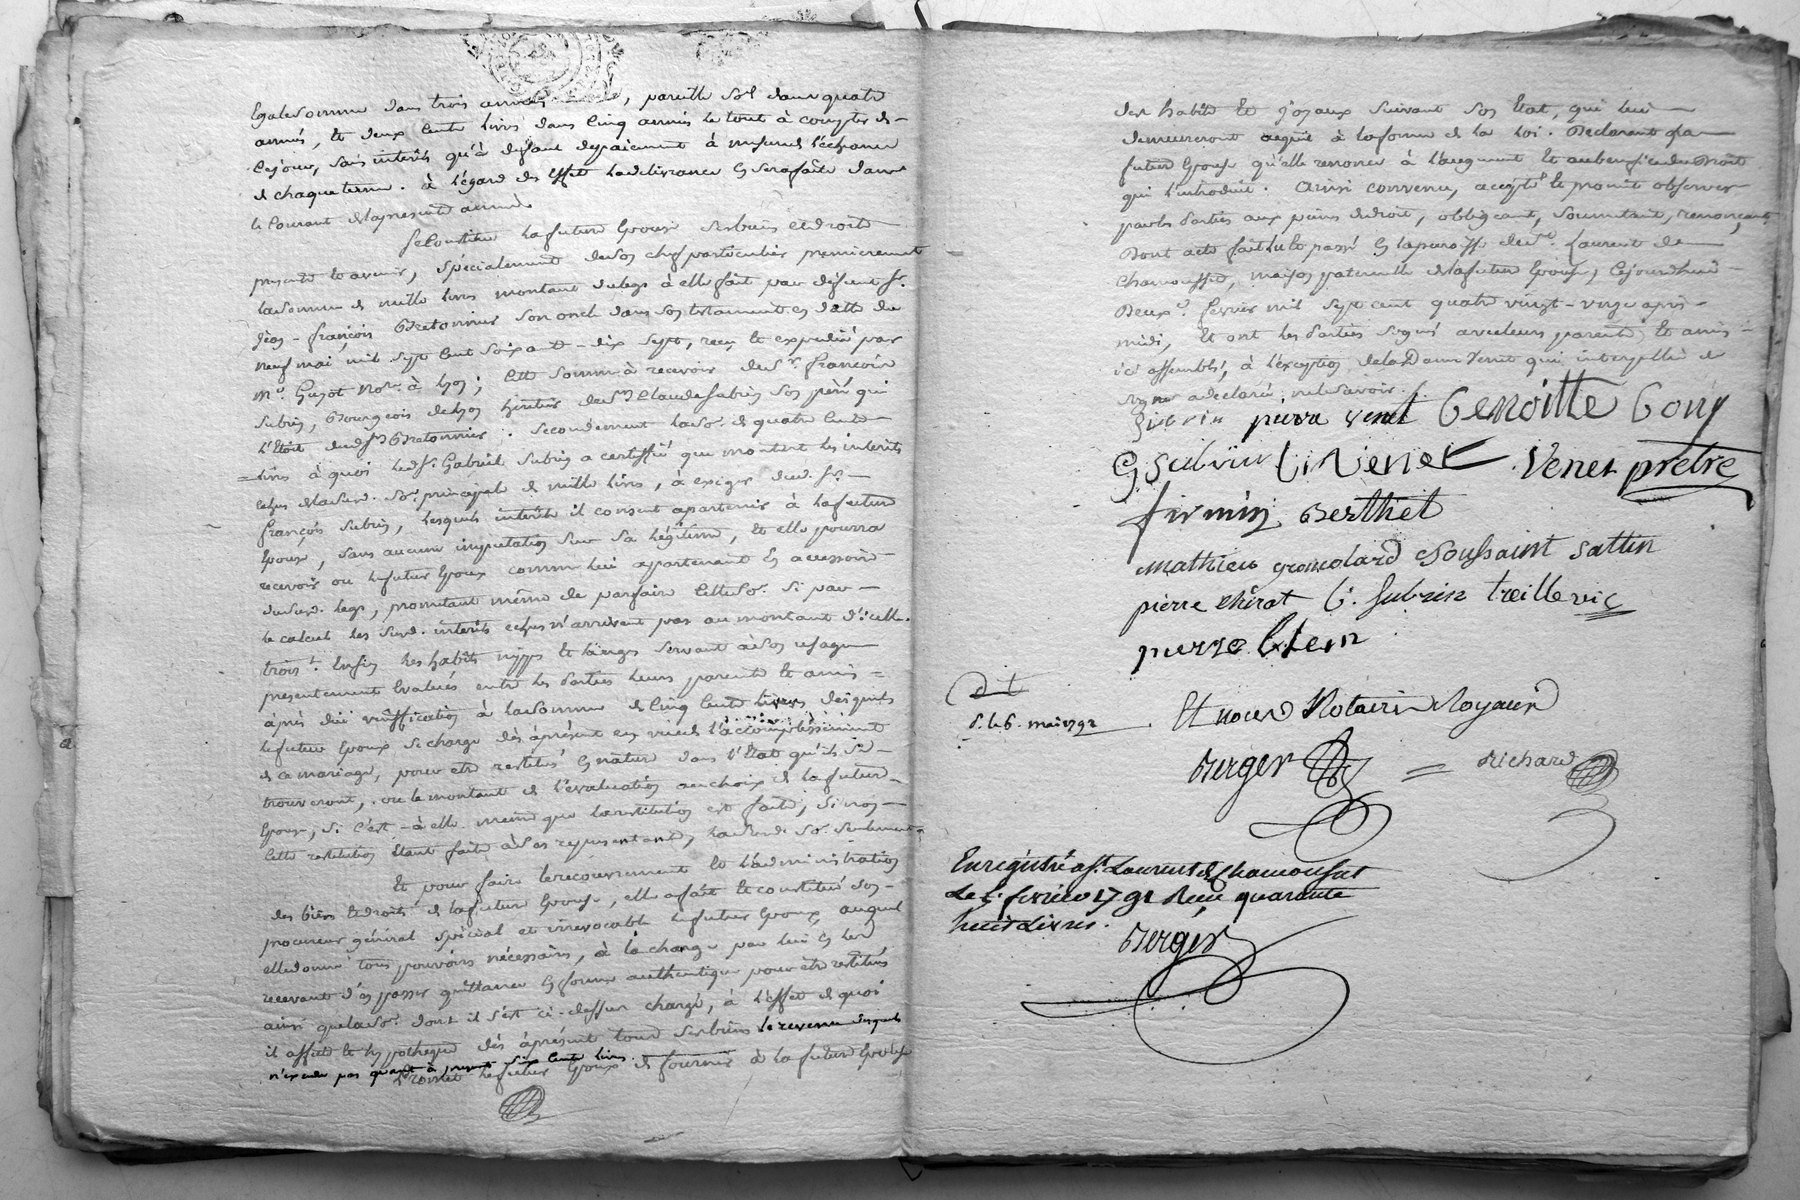 Egale somme dans trois années, pareille so.e dans quatre
années, et deux cents livres dans cinq années le tout à compter de
ce jour, sans intérêts qu'à défaut de paiement à mesure de l'échéance
de chaque terme. à l'égard des effets la délivrance en sera faite dans
le courant de la présente année
Se Constitue la future Epouse ses biens et droits
présents et avenir, spécialement de son chef particulier premièrement
la somme de mille livres montant du legs à elle fait par défunt Sr.
Jean-françois Bretonnier son oncle dans son testament en datte du
neuf mai mil sept cent soixante-dix sept, reçu et expédié par
Me. Guyot Nore. à Lyon; cette somme à recevoir du Sr. françois
Subrin, Bourgeois de Lyon héritier du Sr. Claude Subrin son père qui
l'étoit dudit Sr. Bretonnier. Secondement la so.e de quatre cents
livres à quoi led. Sr. Gabriel Subrin a certifié que montent les intérêts
échus de la sud. so.e principale de mille livres, à exiger dud. Sr.
françois Subrin, lesquels intérêts il consent apartenir à la future
Epouse, sans aucune imputation sur sa légitime, et elle pourra
recevoir ou le futur Epoux comme lui appartenant en accessoire
dusud. legs, promettant même de parfaire cette so.e si par
le calcul les sud. intérêts échus n'arrivent pas au montant d'icelle.
trois.t Enfin les habits nippes et linges servant à son usage
présentement évalués entre les parties leurs parents et amis
après due vérification à la somme de cinq cents livres desquels
le futur Epoux se charge dès à présent en vue de l'accomplissement
de ce mariage, pour être restitués en nature dans l'état qu'ils se
trouveront, ou le montant de l'évaluation au choix de la future
Epouse, si c'est à elle même que la restitution est faite; si non
cette restitution étant faite à ses représentants, la sud. so.e seulement
Et pour faire le recouvrement et l'administration
des biens et droits de la future Epouse, elle a fait et constitué son
procureur général spécial et irrévocable le futur Epoux, auquel
elle donne tous pouvoirs nécessaires, à la charge par lui en les
recevant d'en passer quittance en forme authentique pour être restitués
ainsi que la so.e dont il s'est ci-dessus chargé, à l'effet de quoi
il affecte et hypothèque dès à présent tous ses biens le revenu desquels
n'excède pas quant à présent six cents livres.
Promet le futur Epoux de fournir à la future Epouse
des habits et joyaux suivant son état, qui lui
demeureront acquis à la forme de la loi. Déclarant la
future Epouse qu'elle renonce à l'augment et au bénéfice du Droit
qui l'introduit. Ainsi convenu, accepté et promis observer
par les Parties aux peines de droit, obligeant, soumettant, renonçant,
Dont acte fait lu et passé en la paroisse de St. Laurent de
Chamousset, maison paternelle de la future Epouse, Cejourd'hui
Deux.e février mil sept cent quatre vingt-onze après
midi, Et ont les Parties signé avec leurs parents et amis
ici assemblés, à l'exception de la Dame Venet qui interpellée de
signer a déclaré ne le savoir.
Subrin pierre venet Benoitte Gony
G Subrin Venet Venet prêtre
firmin Berthet
Mathieu Toussaint Sattin
pierre chirat C. Subrin treille vic
pierre
d t
d. le 6. mai 1792
Et nous Notaires Royaux
Berger = Richard
Enregistré a St. Laurent de Chamousset
Le 5. février 1791 Reçu quarante
huit Livres.
Berger